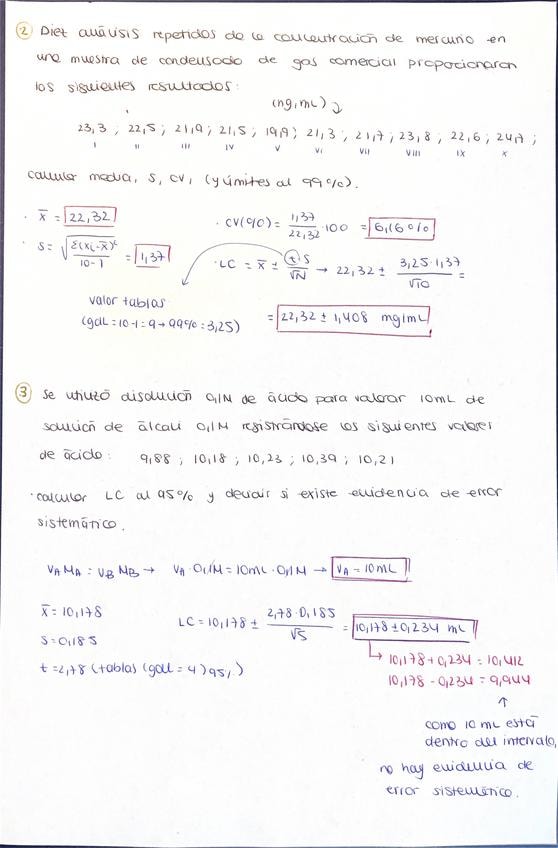 ② Diez análisis repetidos de la concentración de mercurio en
una muestra de condensado de gas comercial proporcionaron
los siguientes resultados:
(ng/mL)
23,3 ; 22,5 ; 21,9 ; 21,5 ; 19,9 ; 21,3 ; 21,7 ; 23,8 ; 22,6 ; 24,7 ;
I II III IV V VI VII VIII IX X
calcular media, s, CV, (y límites al 99%).
· x̄ = 22,32
· CV(%) = 1,37/22,32 · 100 = 6,16%
· s = √(Σ(xᵢ-x̄)²/10-1) = 1,37
· LC = x̄ ± t·s/√N → 22,32 ± 3,25·1,37/√10 =
valor tablas
(gdl = 10-1 = 9 → 99% = 3,25)
= 22,32 ± 1,408 mg/mL
③ Se utilizó disolución 0,1M de ácido para valorar 10mL de
solución de álcali 0,1M registrándose los siguientes valores
de ácido: 9,88 ; 10,18 ; 10,23 ; 10,39 ; 10,21
· calcular LC al 95% y decidir si existe evidencia de error
sistemático.
VA MA = VB MB → VA · 0,1M = 10mL · 0,1M → VA = 10mL
x̄ = 10,178
LC = 10,178 ± 2,78·0,185/√5 = 10,178 ± 0,234 mL
s = 0,185
t = 2,78 (tablas (gdl = 4) 95%)
10,178 + 0,234 = 10,412
10,178 - 0,234 = 9,944
como 10 mL está
dentro del intervalo,
no hay evidencia de
error sistemático.